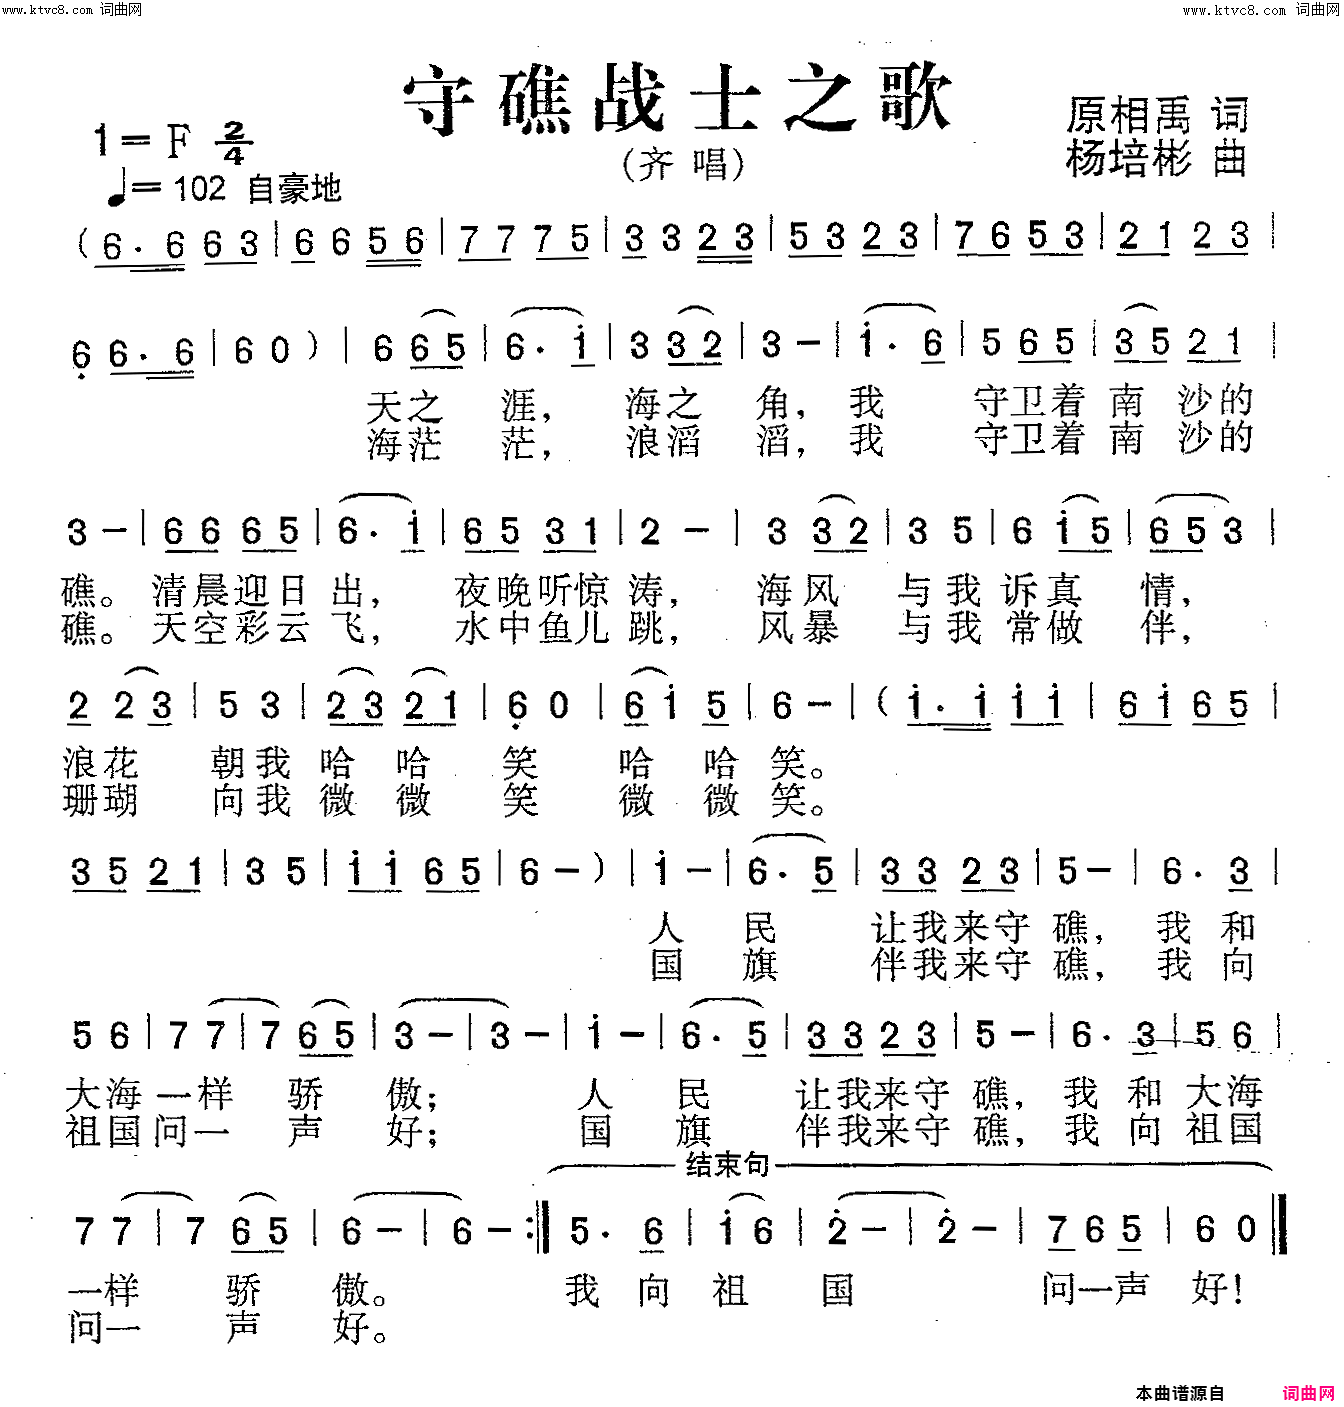 www.ktvc8.com 词曲网 www.ktvc8.com 词曲网
守礁战士之歌
(齐唱)
原相禹 词
杨培彬 曲
1=F 2/4
♩=102 自豪地
(6·663|6656|7775|3323|5323|7653|2123|
66·6|60)|665|6·i|332|3-|i·6|565|3521|
天之涯，海之角，我守卫着南沙的
海茫茫，浪滔滔，我守卫着南沙的
3-|6665|6·i|6531|2-|332|35|6i5|653|
礁。清晨迎日出，夜晚听惊涛，海风与我诉真情，
礁。天空彩云飞，水中鱼儿跳，风暴与我常做伴，
223|53|2321|60|6i5|6-|(i·iii|6i65|
浪花朝我哈哈笑哈哈笑。
珊瑚向我微微笑微微笑。
3521|35|ii65|6-)|i-|6·5|3323|5-|6·3|
人民让我来守礁，我和
国旗伴我来守礁，我向
56|77|765|3-|3-|i-|6·5|3323|5-|6·3|56|
大海一样骄傲；人民让我来守礁，我和大海
祖国问一声好；国旗伴我来守礁，我向祖国
结束句
77|765|6-|6-:‖5·6|i6|2-|2-|765|60‖
一样骄傲。我向祖国问一声好！
问一声好。
本曲谱源自 词曲网